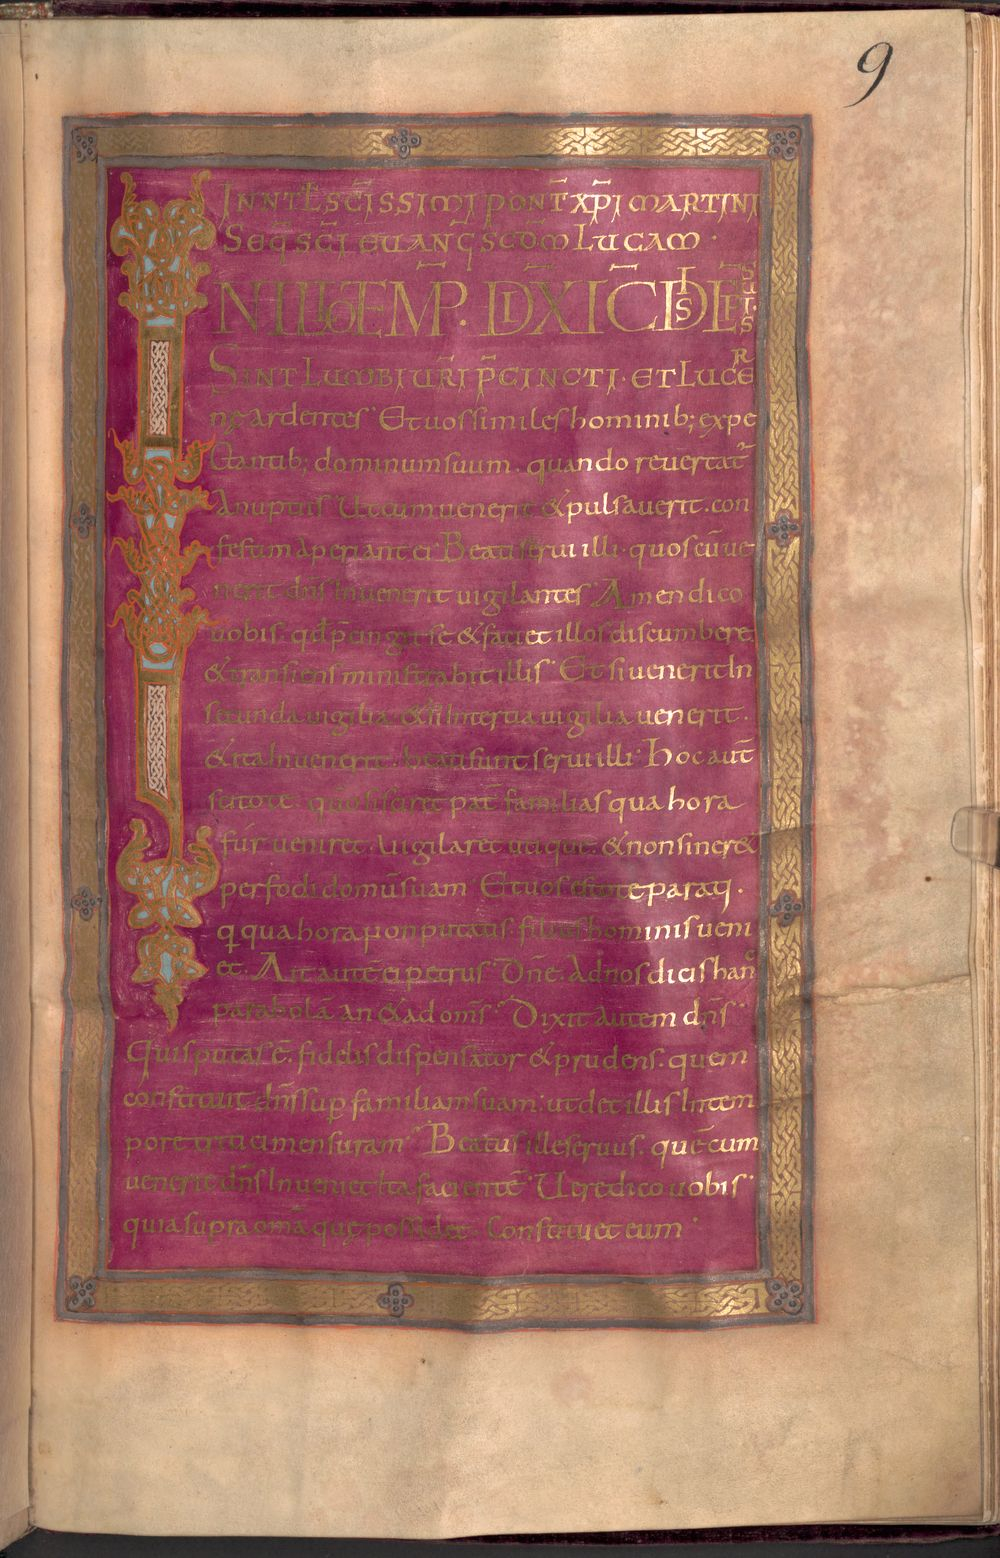 9
IN NAT̅ SC̅ISSIMI PONT̅ XP̅I MARTINI
SEQ̅ SC̅I EVANG̅ SCD̅M LUCAM ·
IN ILLO TEMP̅. DIX̅ IC̅ DISCIPLIS SUIS.
SINT LUMBI UR̅I P̅CINCTI · ET LUCER
nę ardentes · Et uos similes hominib; expe
ctantib; dominum suum · quando reuertat̅
Anuptiis · Ut cum uenerit & pulsauerit · con
festim Aperiant ei · Beati serui illi · quos cu̅ ue
nerit dn̅s Inuenerit uigilantes · Amen dico
uobis · qd̅ p̅cingit se & faciet illos discumbere
& transiens ministrabit illis · Et si uenerit In
secunda uigilia · & si In tertia uigilia uenerit ·
& ita Inuenerit · beati sunt serui illi · Hoc aut̅
scitote · qm̅ si sciret pat̅ familias qua hora
fúr ueniret · Uigilaret utique · & non siner&
perfodi domu̅ suam · Et uos estote parati ·
q qua hora non putatis · filius hominis ueni
et · Ait aute̅ ei petrus · Dn̅e · Ad nos dicis hanc
parabola̅ an & ad oms̅ · Dixit autem dn̅s ·
Quis putas e̅ · fidelis dispensator & prudens · quem
constituit dn̅s sup̅ familiam suam · ut det illis In tem
pore tritici mensuram · Beatus ille seruus · que̅ cum
uenerit dn̅s Inueniet Ita faciente̅ · Uere dico uobis ·
quia supra oma̅ quę possidet · Constituet eum ·